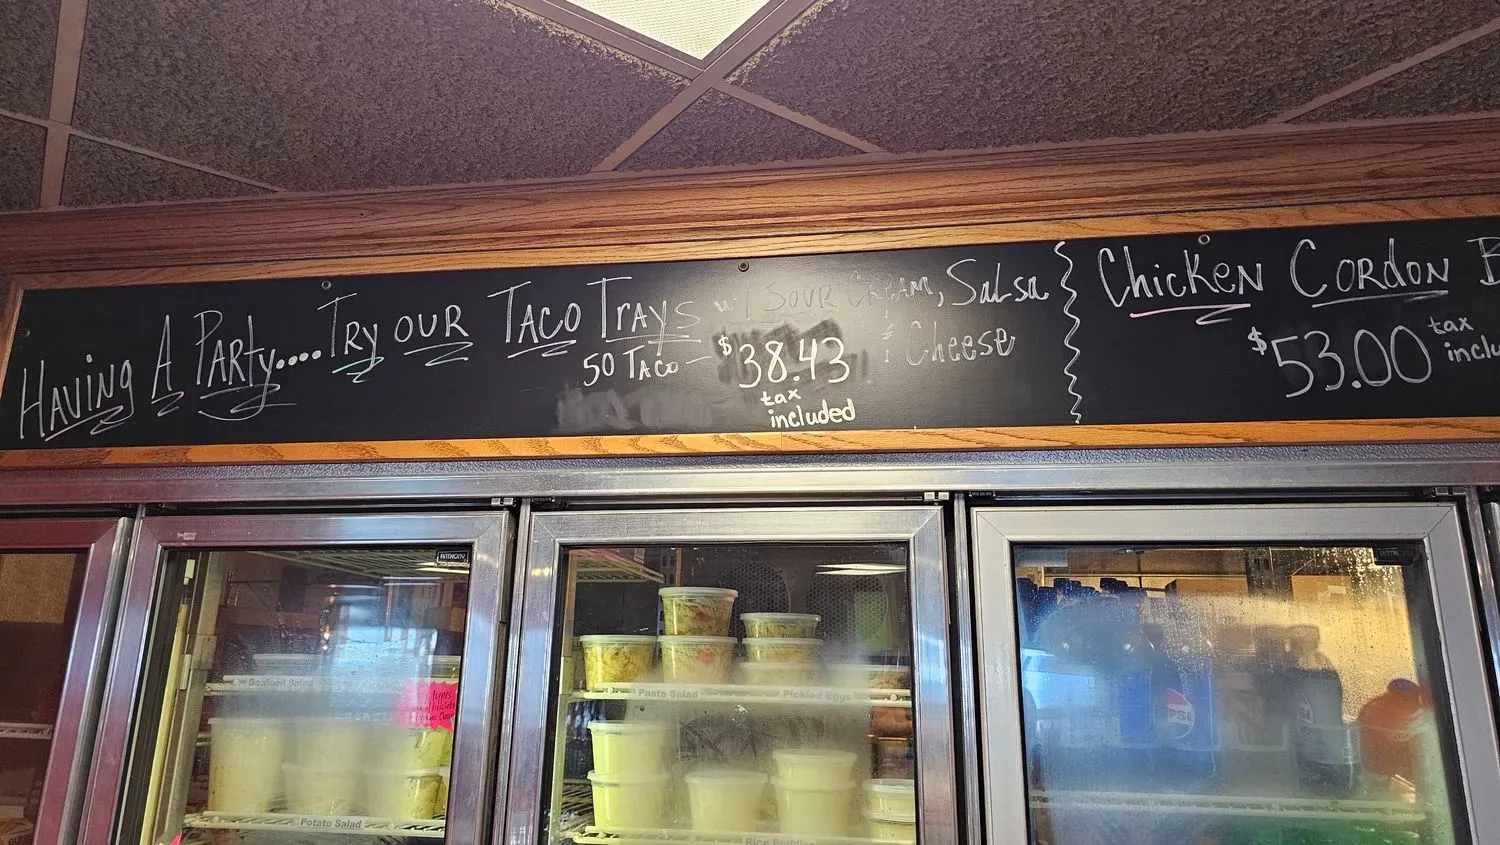 Having A Party.... Try our Taco Trays w/ Sour Cream, Salsa
& Cheese
50 Taco — $38.43
tax
included
Chicken Cordon B
$53.00 tax
inclu
ANTHONY
Seafood Salad
Potato Salad
Pasta Salad
Pickled Eggs
Rice Pudding